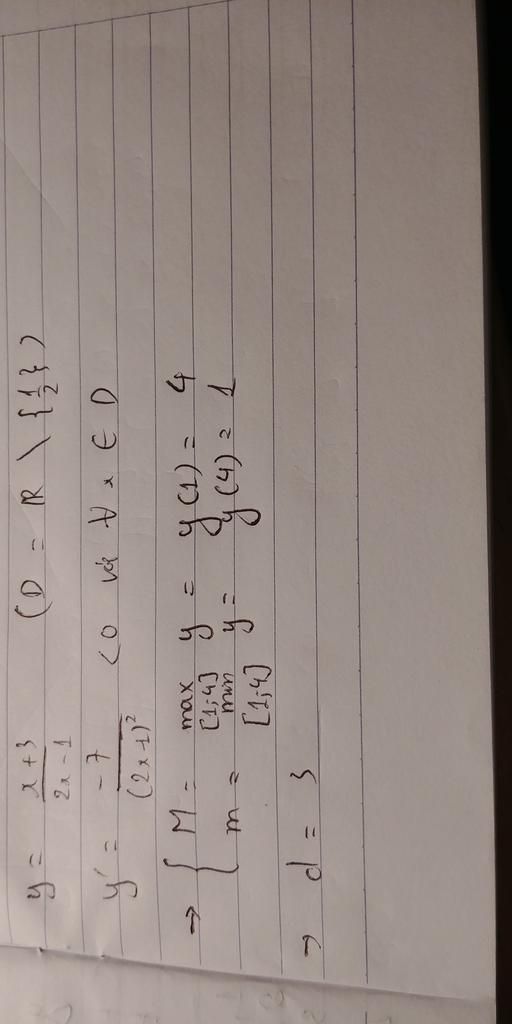 y = \frac{x+3}{2x-1} (D = ℝ \ {\frac{1}{2}})
y' = \frac{-7}{(2x-1)^2} < 0 với ∀ x ∈ D
→ { M = max_{[1;4]} y = y(1) = 4
m = min_{[1;4]} y = y(4) = 1
→ d = 3